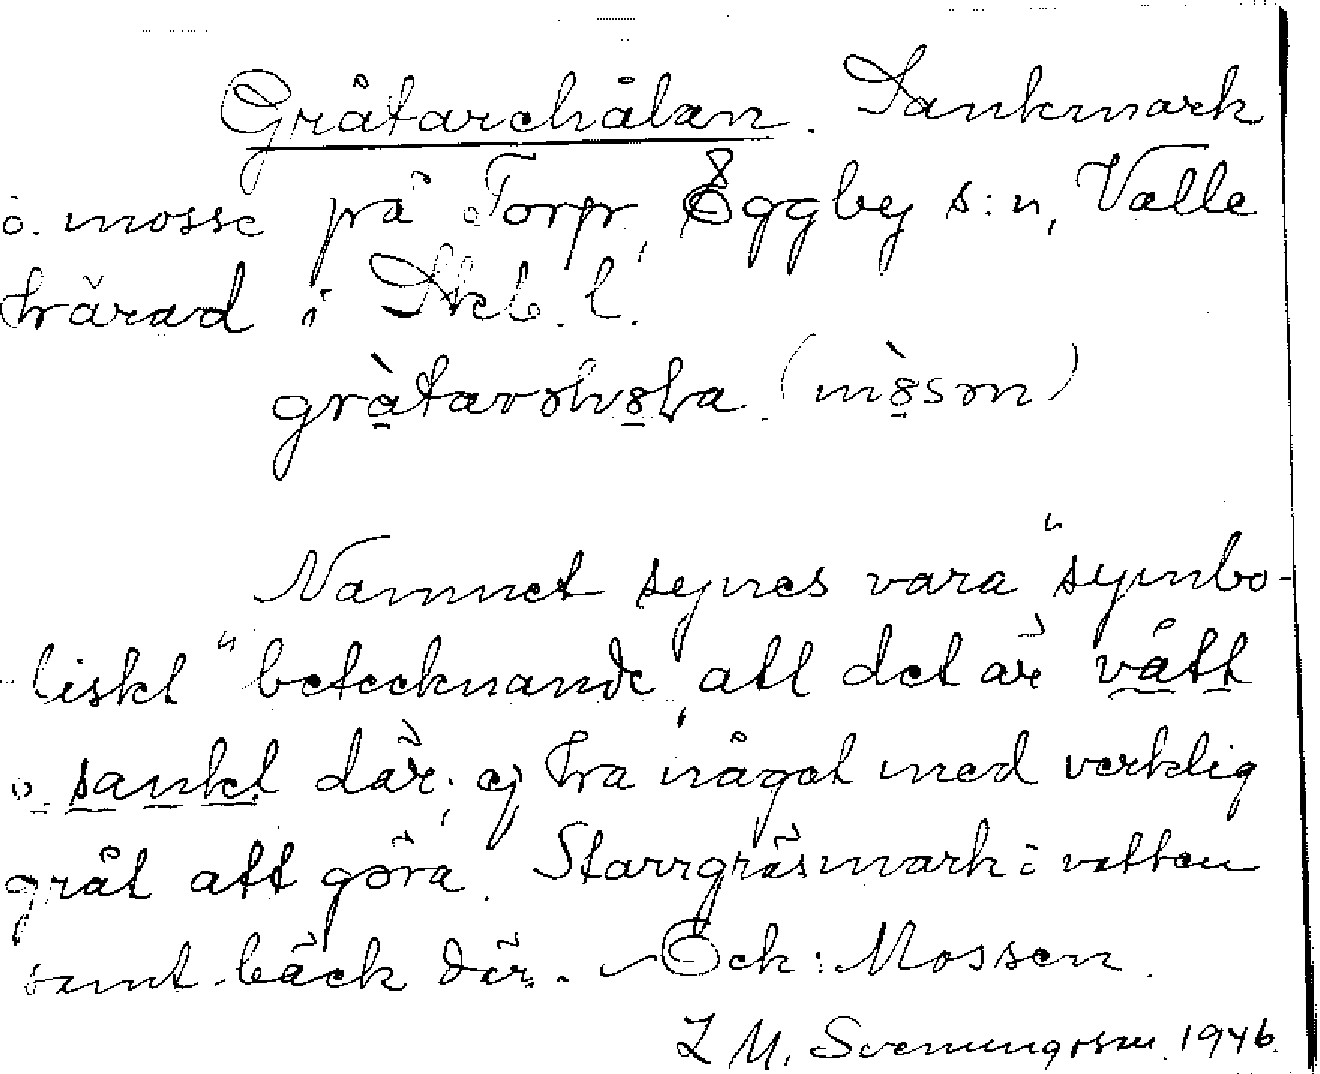 Gråtarehålan. Sankmark
o. mosse på Torp, Eggby s:n, Valle
härad i Skb. l.
(mòsәn)
Namnet synes vara "symbo-
liskt" betecknande, att det är vått
o. sankt där; ej ha något med verklig
gråt att göra. Starrgräsmark i vatten
samt bäck där. – Eck: Mossen.
1946.